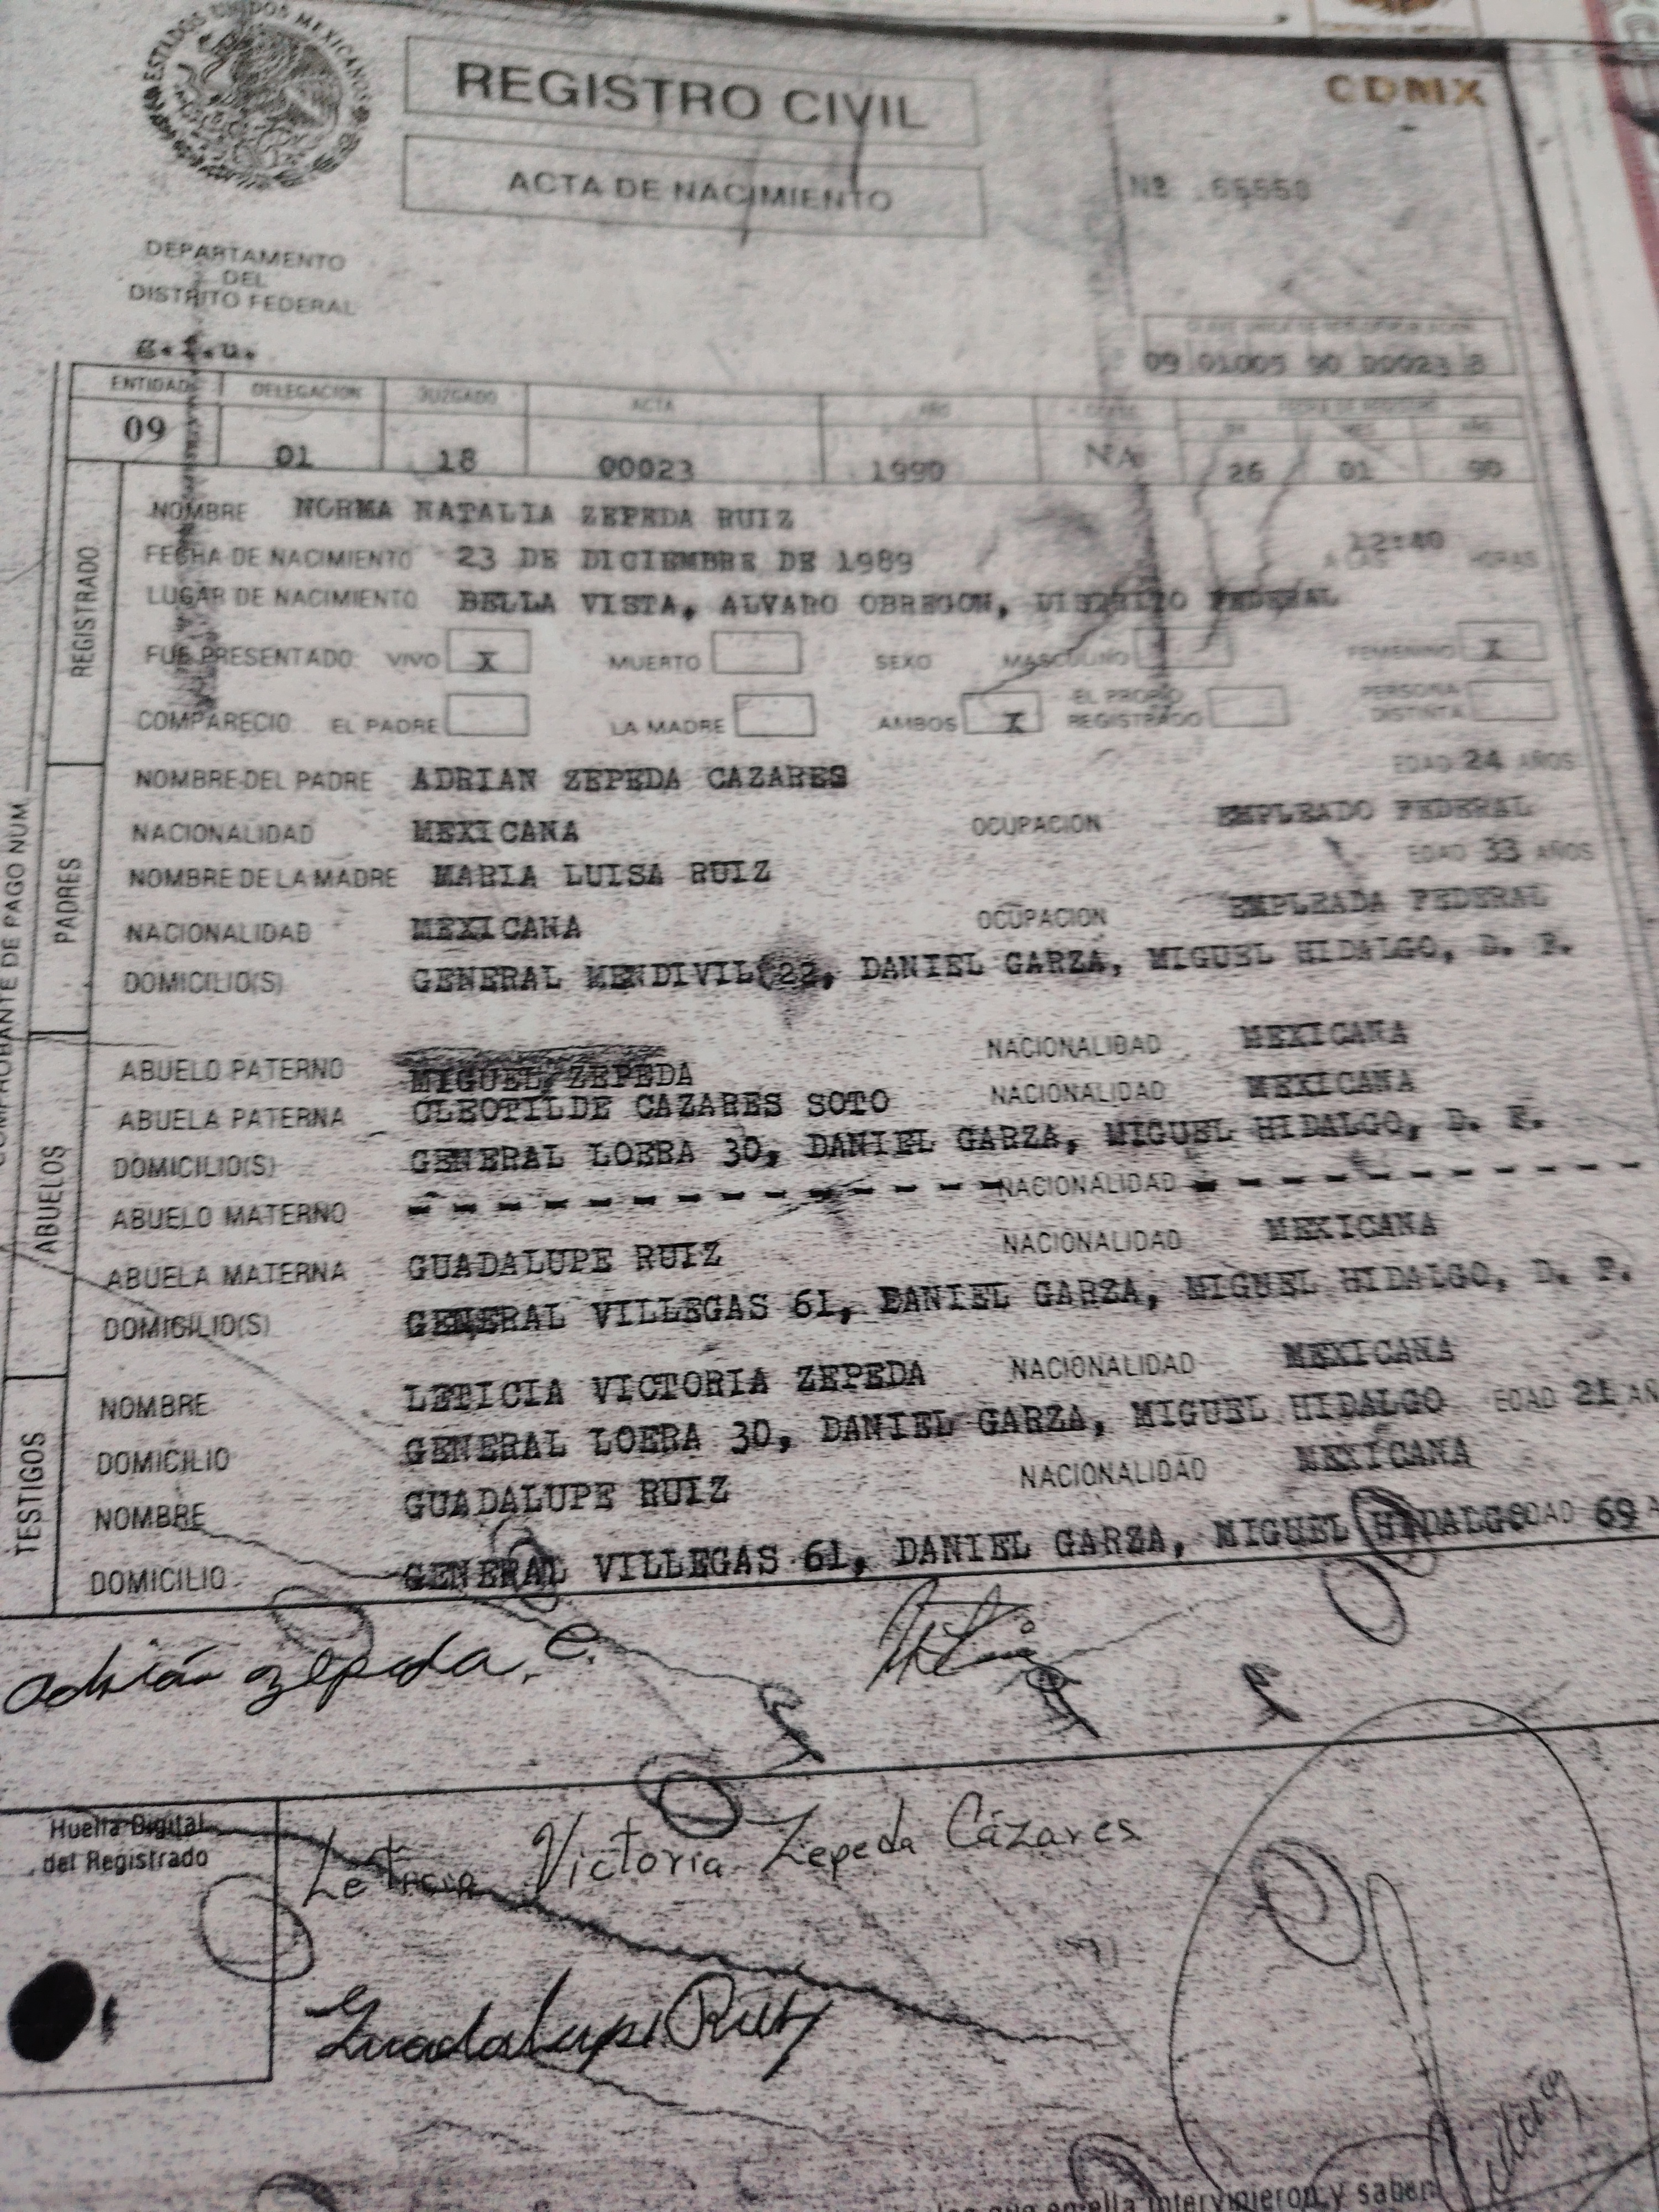 ESTADOS UNIDOS MEXICANOS
REGISTRO CIVIL
CDMX
ACTA DE NACIMIENTO
Nº
DEPARTAMENTO
DEL
DISTRITO FEDERAL
09 01005 90 00023 8
ENTIDAD DELEGACION JUZGADO ACTA AÑO CLASE FECHA DE REGISTRO
DIA MES AÑO
09 01 18 00023 1990 NA 26 01 90
REGISTRADO
NOMBRE NORMA NATALIA ZEPEDA RUIZ
FECHA DE NACIMIENTO 23 DE DICIEMBRE DE 1989 A LAS 12:40 HORAS
LUGAR DE NACIMIENTO BELLA VISTA, ALVARO OBREGON, DISTRITO FEDERAL
FUE PRESENTADO: VIVO X MUERTO SEXO MASCULINO FEMENINO X
COMPARECIO EL PADRE LA MADRE AMBOS X EL PROPIO REGISTRADO PERSONA DISTINTA
COMPROBANTE DE PAGO NUM.
PADRES
NOMBRE DEL PADRE ADRIAN ZEPEDA CAZARES EDAD 24 AÑOS
NACIONALIDAD MEXICANA OCUPACION EMPLEADO FEDERAL
NOMBRE DE LA MADRE MARIA LUISA RUIZ EDAD 33 AÑOS
NACIONALIDAD MEXICANA OCUPACION EMPLEADA FEDERAL
DOMICILIO(S) GENERAL MENDIVIL 22, DANIEL GARZA, MIGUEL HIDALGO, D. F.
ABUELOS
ABUELO PATERNO MIGUEL ZEPEDA NACIONALIDAD MEXICANA
ABUELA PATERNA CLEOTILDE CAZARES SOTO NACIONALIDAD MEXICANA
DOMICILIO(S) GENERAL LOERA 30, DANIEL GARZA, MIGUEL HIDALGO, D. F.
ABUELO MATERNO - - - - - - - - - - - - - NACIONALIDAD - - - - - - - - - -
ABUELA MATERNA GUADALUPE RUIZ NACIONALIDAD MEXICANA
DOMICILIO(S) GENERAL VILLEGAS 61, DANIEL GARZA, MIGUEL HIDALGO, D. F.
TESTIGOS
NOMBRE LETICIA VICTORIA ZEPEDA NACIONALIDAD MEXICANA
DOMICILIO GENERAL LOERA 30, DANIEL GARZA, MIGUEL HIDALGO EDAD 21 AÑ
NOMBRE GUADALUPE RUIZ NACIONALIDAD MEXICANA
DOMICILIO GENERAL VILLEGAS 61, DANIEL GARZA, MIGUEL HIDALGO EDAD 69 A
Adrián Zepeda. C.
Huella Digital
del Registrado
Leticia Victoria Zepeda Cázares
Guadalupe Ruiz
ella intervinieron y saben